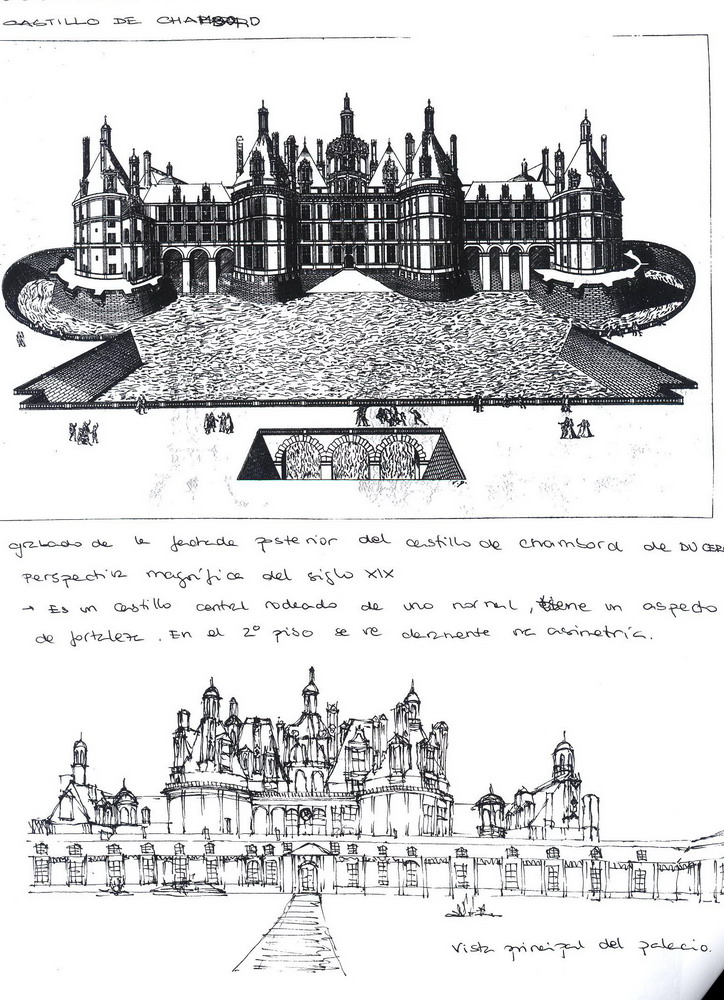 CASTILLO DE CHAMBORD
grabado de la fachada posterior del castillo de chambord de DU CER
Perspectiva magnífica del siglo XIX
→ Es un castillo central rodeado de uno normal, tiene un aspecto
de fortaleza. En el 2º piso se ve claramente una asimetría.
Vista principal del palacio.